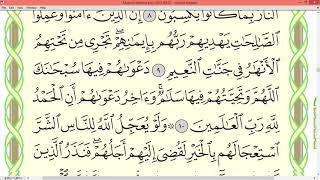 ٱلنَّارُ بِمَا كَانُوا۟ يَكْسِبُونَ ٨ إِنَّ ٱلَّذِينَ ءَامَنُوا۟ وَعَمِلُوا۟
ٱلصَّـٰلِحَـٰتِ يَهْدِيهِمْ رَبُّهُم بِإِيمَـٰنِهِمْ ۖ تَجْرِى مِن تَحْتِهِمُ
ٱلْأَنْهَـٰرُ فِى جَنَّـٰتِ ٱلنَّعِيمِ ٩ دَعْوَىٰهُمْ فِيهَا سُبْحَـٰنَكَ
ٱللَّهُمَّ وَتَحِيَّتُهُمْ فِيهَا سَلَـٰمٌ ۚ وَءَاخِرُ دَعْوَىٰهُمْ أَنِ ٱلْحَمْدُ
لِلَّهِ رَبِّ ٱلْعَـٰلَمِينَ ١٠ ۞ وَلَوْ يُعَجِّلُ ٱللَّهُ لِلنَّاسِ ٱلشَّرَّ
ٱسْتِعْجَالَهُم بِٱلْخَيْرِ لَقُضِىَ إِلَيْهِمْ أَجَلُهُمْ ۖ فَنَذَرُ ٱلَّذِينَ